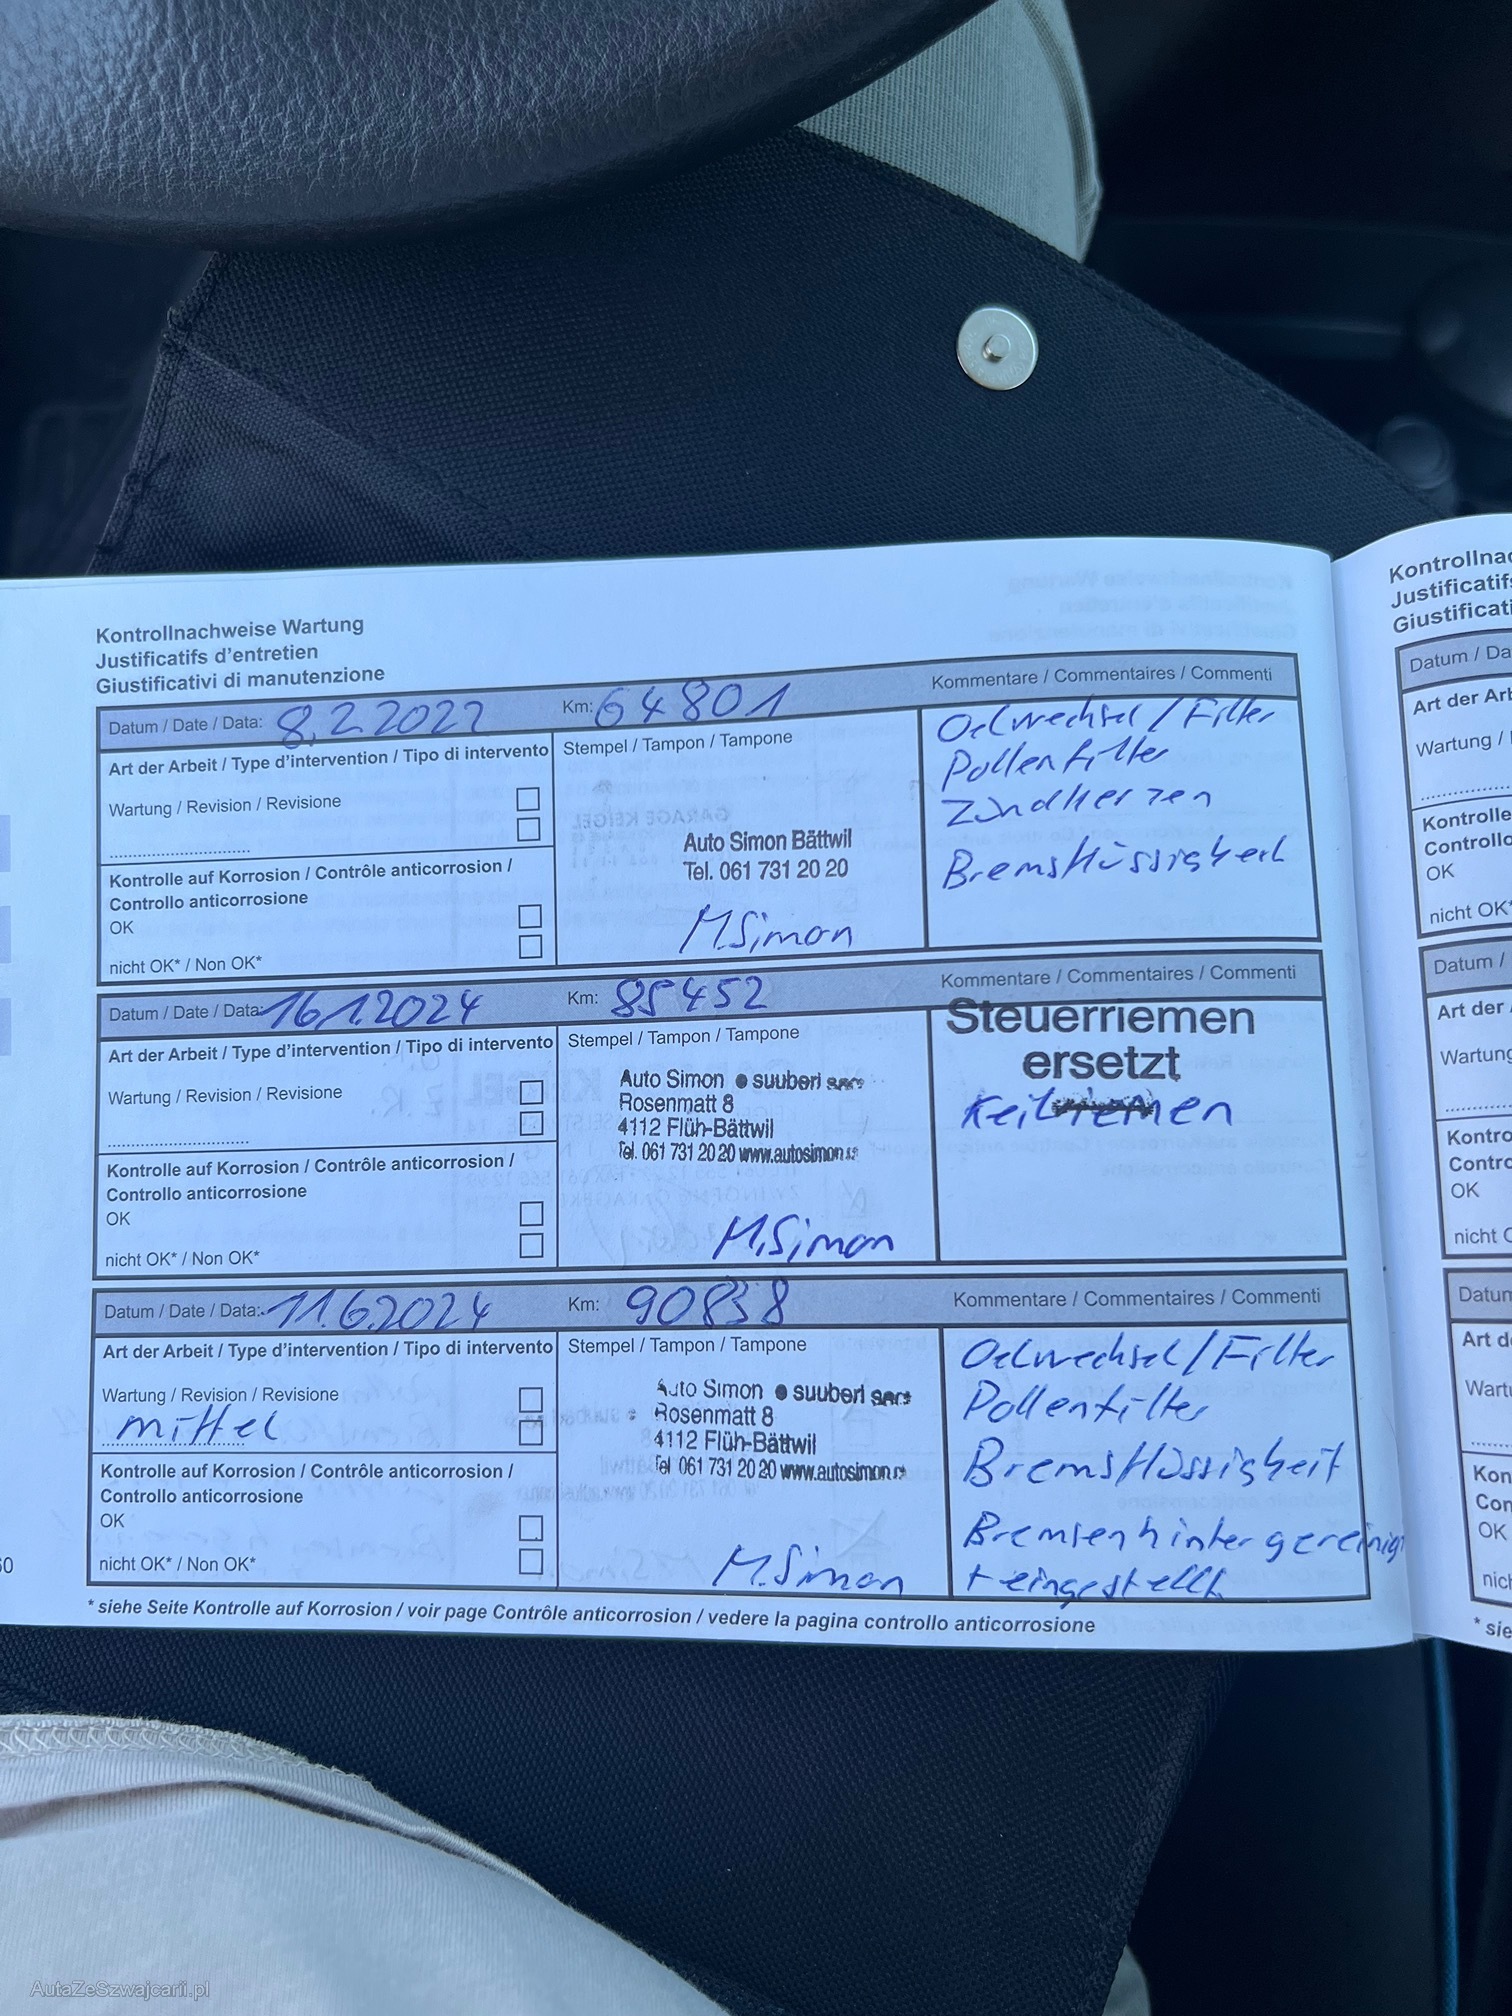 Kontrollnachweise Wartung
Justificatifs d'entretien
Giustificativi di manutenzione
Datum / Date / Data: 8.2.2022 Km: 64801 Kommentare / Commentaires / Commenti
Art der Arbeit / Type d'intervention / Tipo di intervento
Stempel / Tampon / Tampone
Wartung / Revision / Revisione
Kontrolle auf Korrosion / Contrôle anticorrosion /
Controllo anticorrosione
OK
nicht OK* / Non OK*
Auto Simon Bättwil
Tel. 061 731 20 20
M.Simon
Oelwechsel / Filter
Pollenfilter
Zündkerzen
Bremsflüssigkeit
Datum / Date / Data: 16.1.2024 Km: 85452 Kommentare / Commentaires / Commenti
Art der Arbeit / Type d'intervention / Tipo di intervento
Stempel / Tampon / Tampone
Wartung / Revision / Revisione
Kontrolle auf Korrosion / Contrôle anticorrosion /
Controllo anticorrosione
OK
nicht OK* / Non OK*
Auto Simon ● suuberi
Rosenmatt 8
4112 Flüh-Bättwil
Tel. 061 731 20 20 www.autosimon
M.Simon
Steuerriemen
ersetzt
Datum / Date / Data: 11.6.2024 Km: 90838 Kommentare / Commentaires / Commenti
Art der Arbeit / Type d'intervention / Tipo di intervento
Stempel / Tampon / Tampone
Wartung / Revision / Revisione
mittel
Kontrolle auf Korrosion / Contrôle anticorrosion /
Controllo anticorrosione
OK
nicht OK* / Non OK*
Auto Simon ● suuberi
Rosenmatt 8
4112 Flüh-Bättwil
Tel 061 731 20 20 www.autosimon
M.Simon
Oelwechsel / Filter
Pollenfilter
Bremsflüssigkeit
Bremsen hinter gereinigt
+ eingestellt
* siehe Seite Kontrolle auf Korrosion / voir page Contrôle anticorrosion / vedere la pagina controllo anticorrosione
Kontrollnac
Justificatifs
Giustificati
Datum / Da
Art der Arb
Wartung /
Kontrolle
Controllo
OK
nicht OK*
Datum /
Art der
Wartung
Kontro
Contro
OK
nicht O
Datum
Art d
Wart
Kon
Con
OK
nich
* sie
AutaZeSzwajcarii.pl